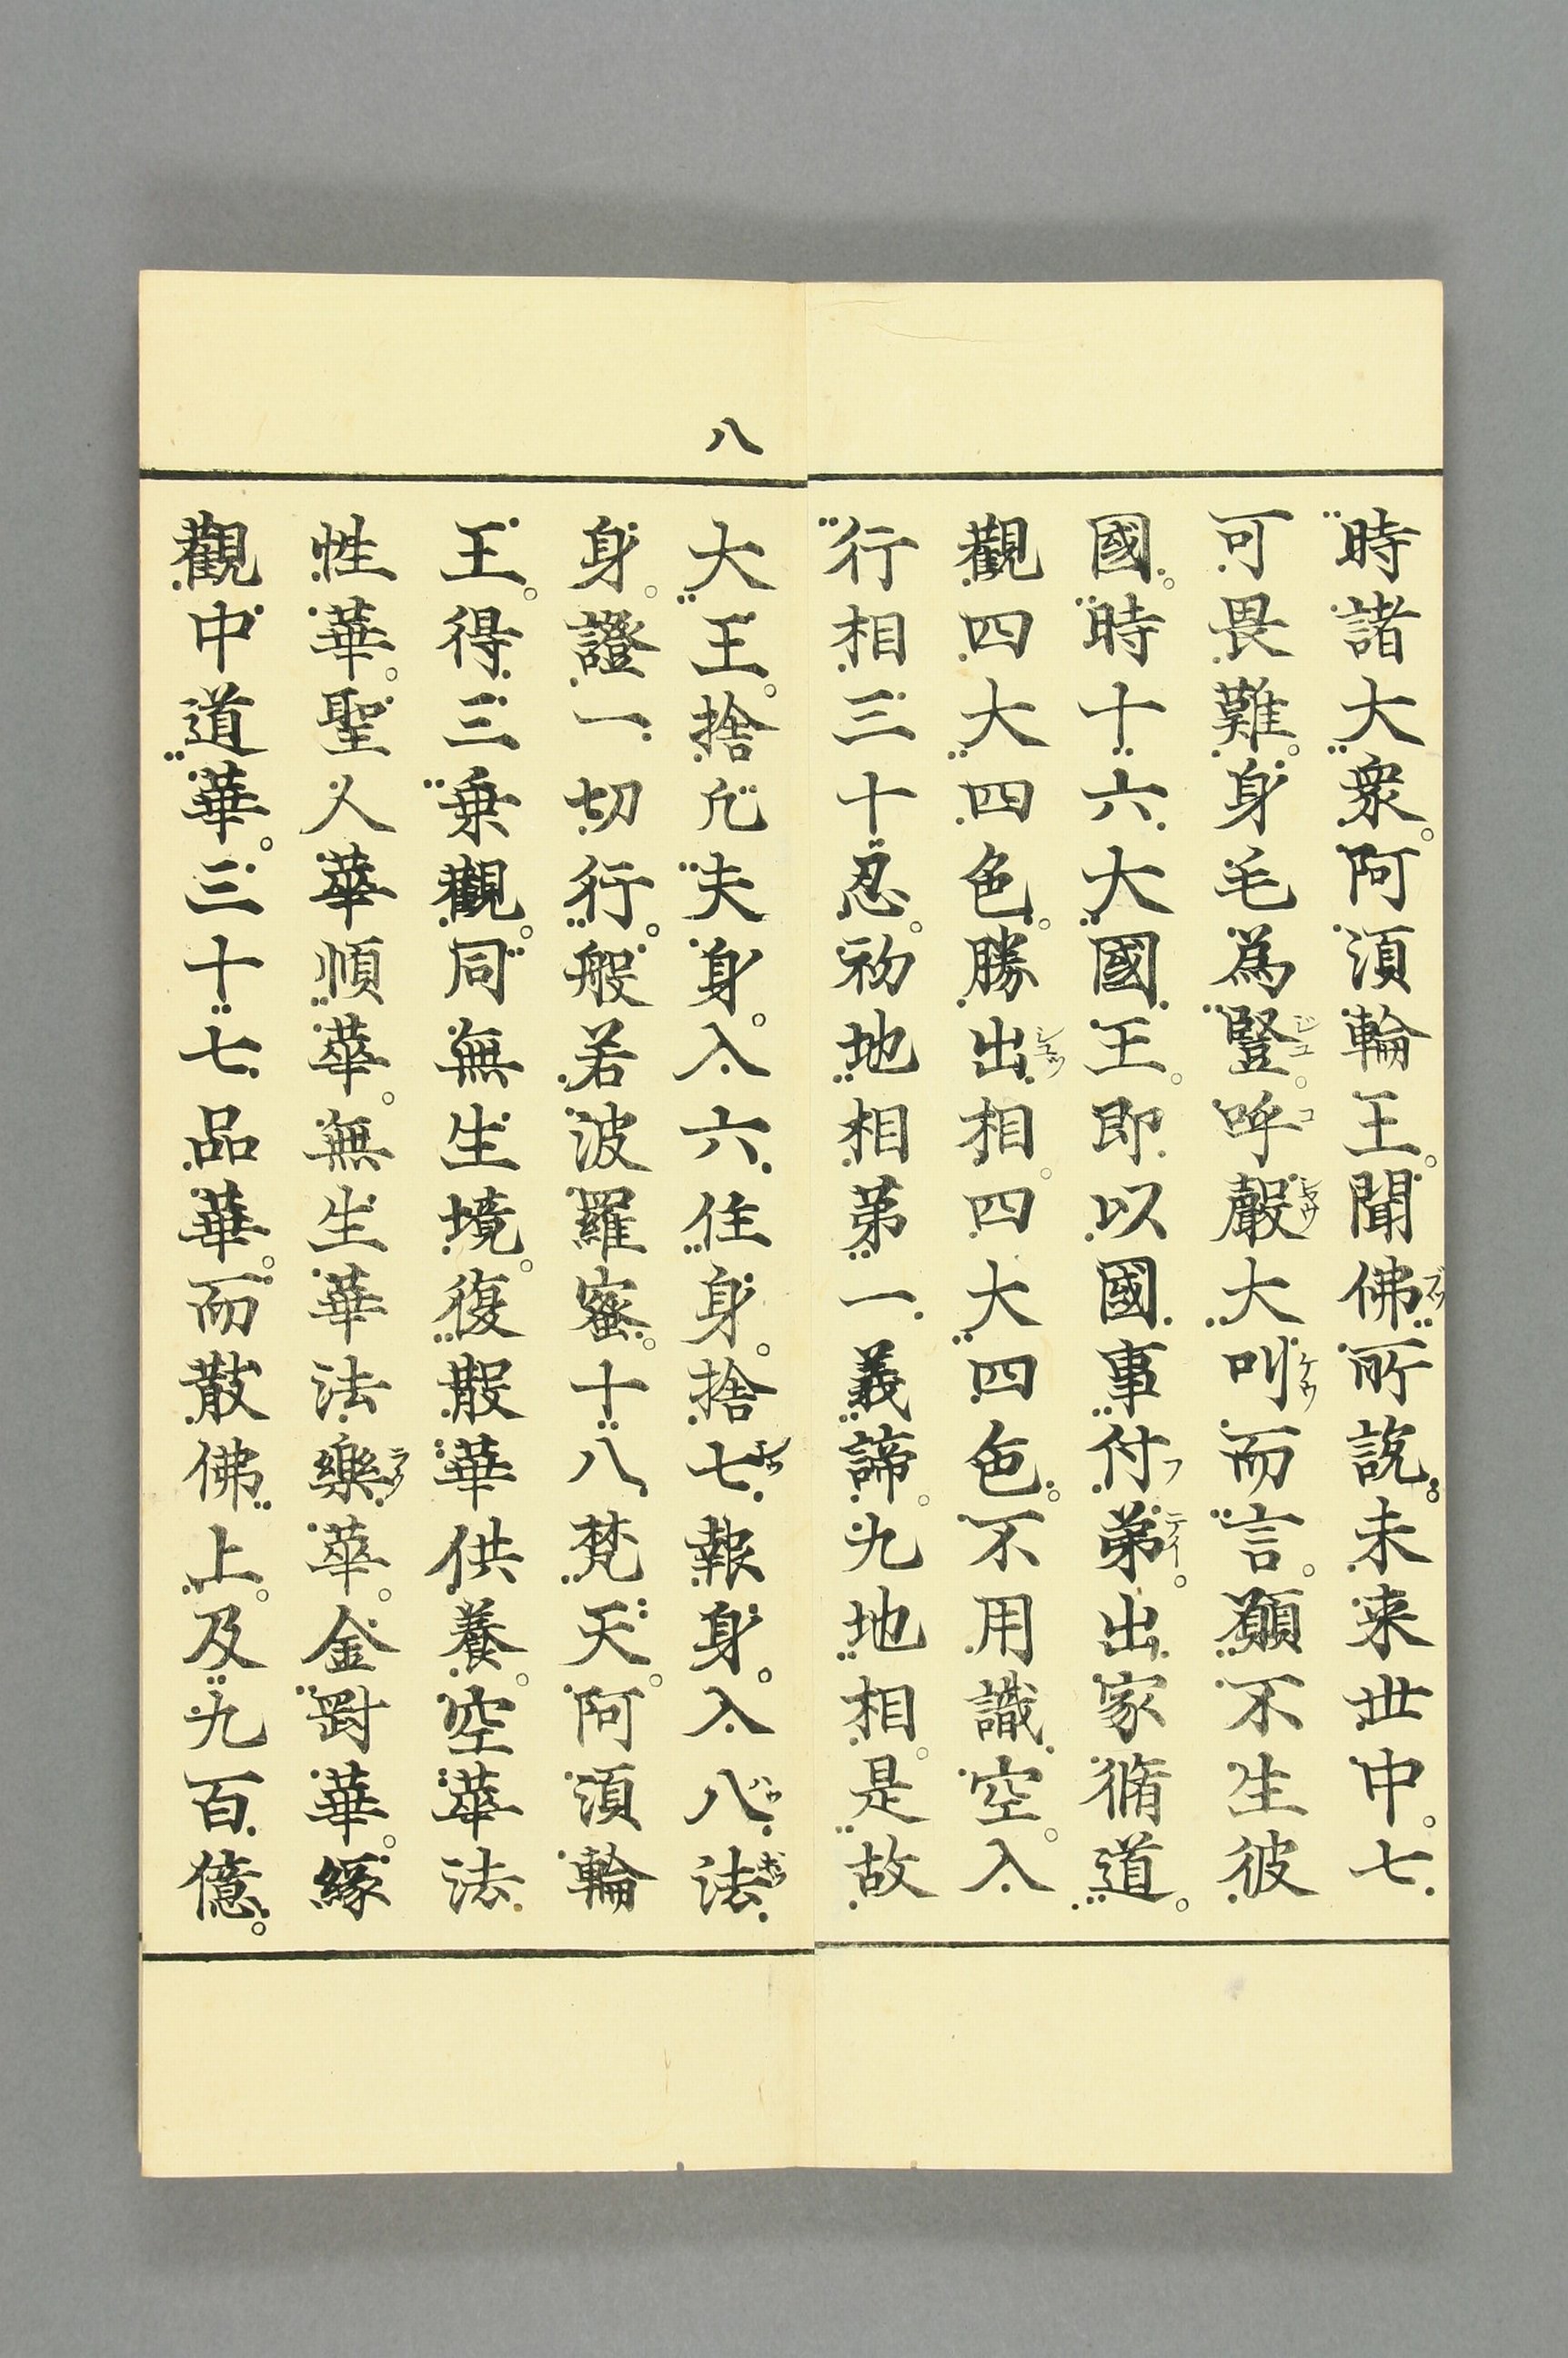 時諸大衆。阿湏輪王。聞佛所說。未来世中。七
可畏難。身毛爲豎。呼聲大叫而言。願不生彼
國。時十六大國王。即以國事付弟。出家脩道。
觀四大四色。勝出相。四大四色。不用識空。入
行相三十忍。初地相。第一義諦。九地相。是故
八
大王。捨凢夫身。入六住身。捨七報身。入八法
身。證一切行。般若波羅蜜。十八梵天。阿湏輪
王。得三乗觀。同無生境。復散華供養。空華法
性華。聖人華順華。無生華法樂華。金剛華。緣
觀中道華。三十七品華。而散佛上。及九百億。